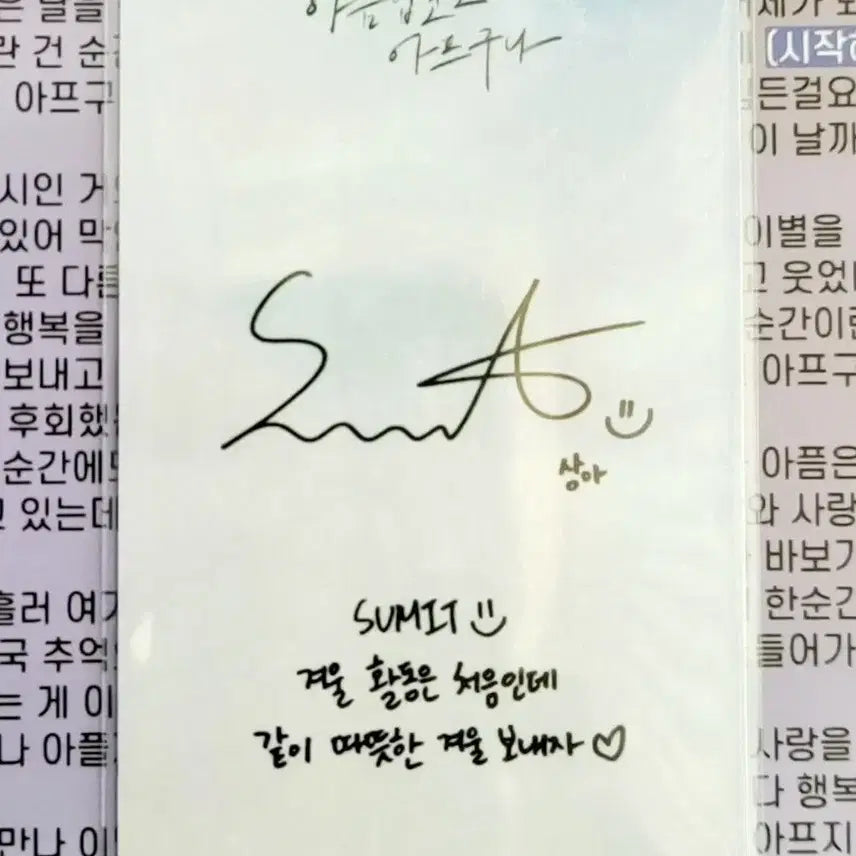 아프구나
상아
SUMIT
겨울 활동은 처음인데
같이 따뜻한 겨울 보내자 ♡
아프구
시인 거
있어 막
또 다른
행복을
보내고
후회했
순간에도
있는데
흘러 여기
추억
는 게 이
나 아플
만나 이별
(시작하
든걸요
이 날까
이별을
고 웃었
순간이란
아프구
아픔은
와 사랑
바보가
한순간
들어가
사랑을
다 행복
아프지